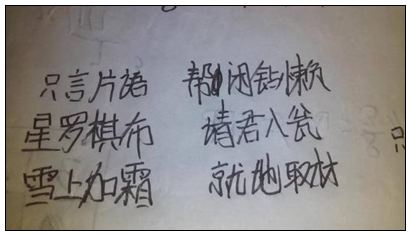 只言片語 帮闲钻懒
星罗棋布 请君入瓮
雪上加霜 就地取材